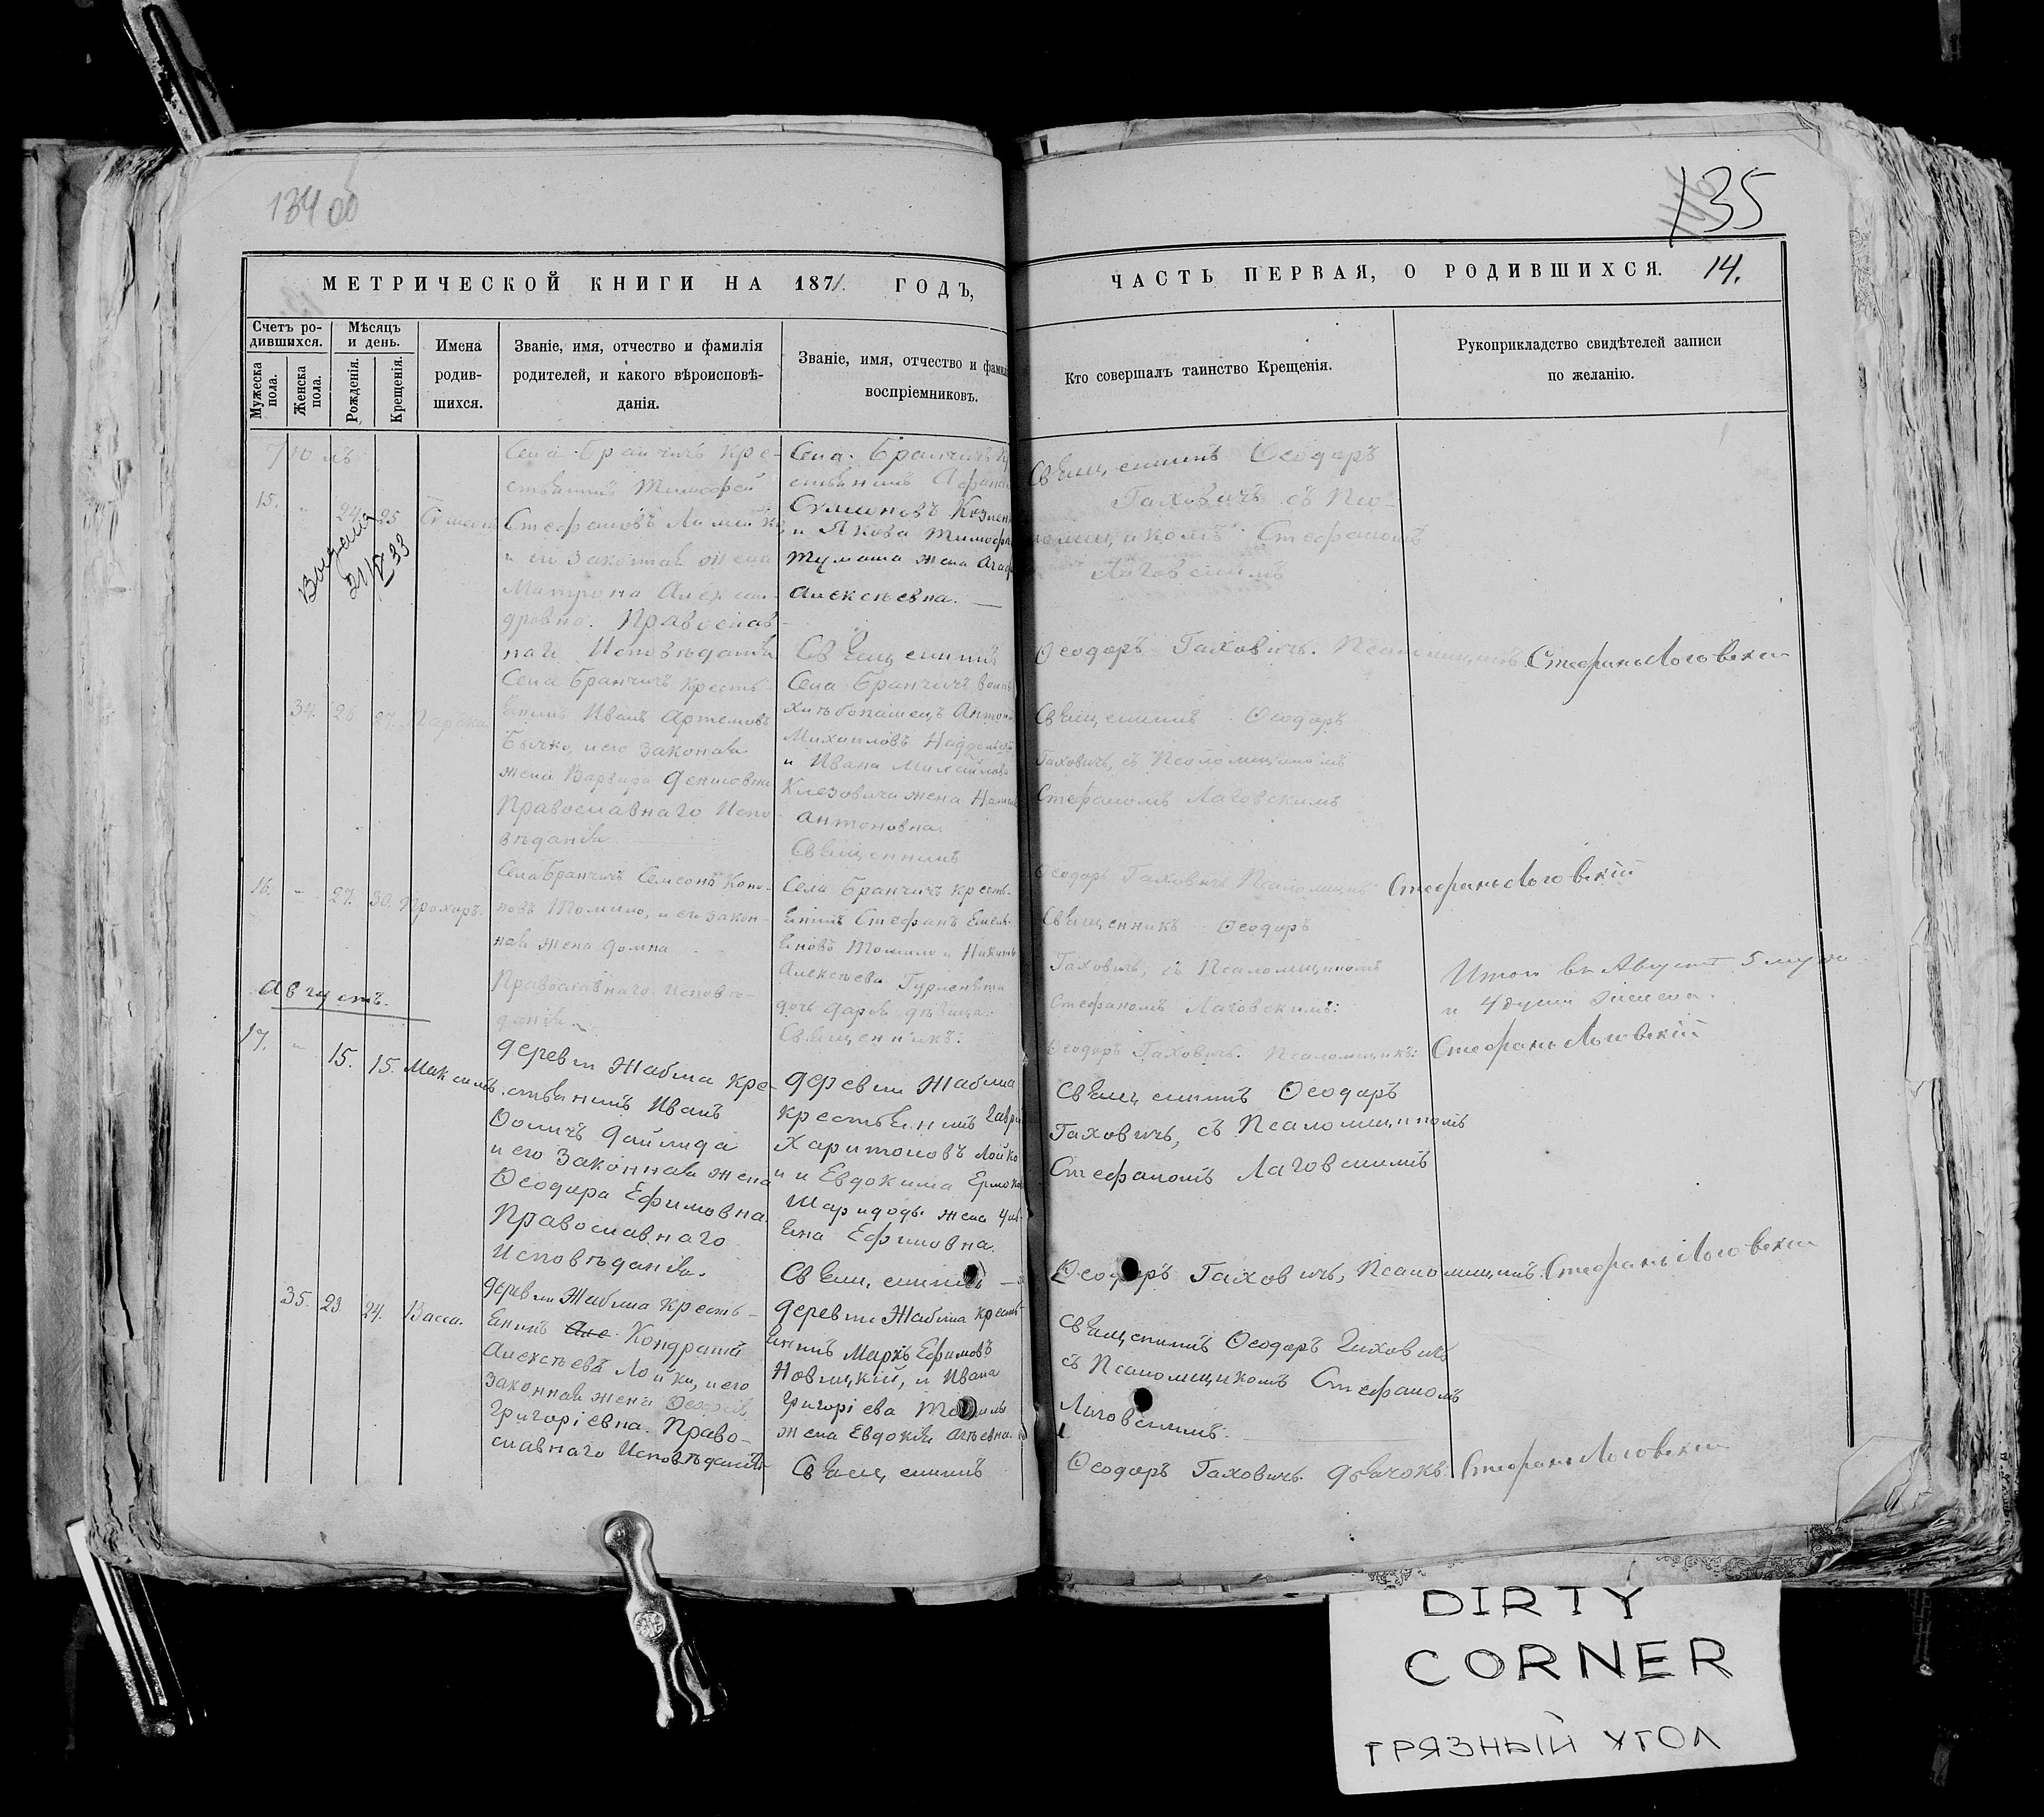 134 об
135
МЕТРИЧЕСКОЙ КНИГИ НА 1871. ГОДЪ,
ЧАСТЬ ПЕРВАЯ, О РОДИВШИХСЯ. 14.
Счетъ ро-
дившихся.
Мужеска пола.
Женска пола.
Мѣсяцъ
и день.
Рожденія.
Крещенія.
Имена
родив-
шихся.
Званіе, имя, отчество и фамилія
родителей, и какого вѣроисповѣ-
данія.
Званіе, имя, отчество и фамил
воспріемниковъ.
Кто совершалъ таинство Крещенія.
Рукоприкладство свидѣтелей записи
по желанію.
Іюль
15. " 24 25
Выдана
21/V 33
Села Бранчичъ Кре-
стьянинъ Тимофей
Стефановъ
и его законная жена
Матрона Алексан-
дровна. Православ-
наго Исповѣданія
Села Бранчичъ
стьянинъ
Симоновъ
и Якова Тимоф
жена Агаф
Алексѣевна.
Священникъ
Священникъ Ѳеодоръ
Гаховичъ съ Псо-
ломщикомъ Стефаномъ
Лаговскимъ
Ѳеодоръ Гаховичъ. Псаломщикъ Стефанъ Лаговскій
34. 26 27. Параскева
Села Бранчичъ Кресть-
янинъ Иванъ Артемовъ
Бычко, и его законная
жена Варвара Денисовна
Православнаго Испо-
вѣданія
Села Бранчичъ
хлѣбопашецъ Антонъ
Михаиловъ
и Ивана Михайлова
жена
Антоновна.
Священникъ
Священникъ Ѳеодоръ
Гаховичъ, съ Псаломщикомъ
Стефаномъ Лаговскимъ
Ѳеодоръ Гаховичъ Псаломщикъ Стефанъ Лаговскій
16. " 27. 30. Прохоръ.
Села Бранчичъ Семеонъ Коно-
новъ Томило, и его закон-
ная жена Домна
Православнаго Исповѣ-
данія
Села Бранчичъ Кресть-
янинъ Стефанъ Емель-
яновъ Томило и Никиты
Алексѣева
дочь Дарія дѣвица.
Священникъ:
Священникъ Ѳеодоръ
Гаховичъ, съ Псаломщикомъ
Стефаномъ Лаговскимъ:
Ѳеодоръ Гаховичъ. Псаломщикъ: Стефанъ Лаговскій
Итого въ Августѣ 5
и 4 души
Августъ.
17. " 15. 15. Максимъ.
Деревни Жабина Кре-
стьянинъ Иванъ
Ѳомичъ Дайлида
и его законная жена
Ѳеодора Ефимовна.
Православнаго
Исповѣданія.
Деревни Жабина
Крестьянинъ Гаврі
Харитоновъ Лойко
и Евдокима
жена
Ефимовна.
Священникъ
Священникъ Ѳеодоръ
Гаховичъ, съ Псаломщикомъ
Стефаномъ Лаговскимъ
Ѳеодоръ Гаховичъ, Псаломщикъ. Стефанъ Лаговскій
35. 23 24. Васса.
Деревни Жабина Кресть-
янинъ Але Кондратій
Алексѣевъ Лойко, и его
законная жена
Григоріевна. Право-
славнаго Исповѣданія
Деревни Жабина Кресть-
янинъ Маркъ Ефимовъ
Новицкій, и Ивана
Григоріева
жена Евдокія
Священникъ
Священникъ Ѳеодоръ Гаховичъ
съ Псаломщикомъ Стефаномъ
Лаговскимъ.
Ѳеодоръ Гаховичъ. Дьячокъ: Стефанъ Лаговскій
DIRTY
CORNER
ГРЯЗНЫЙ УГОЛ